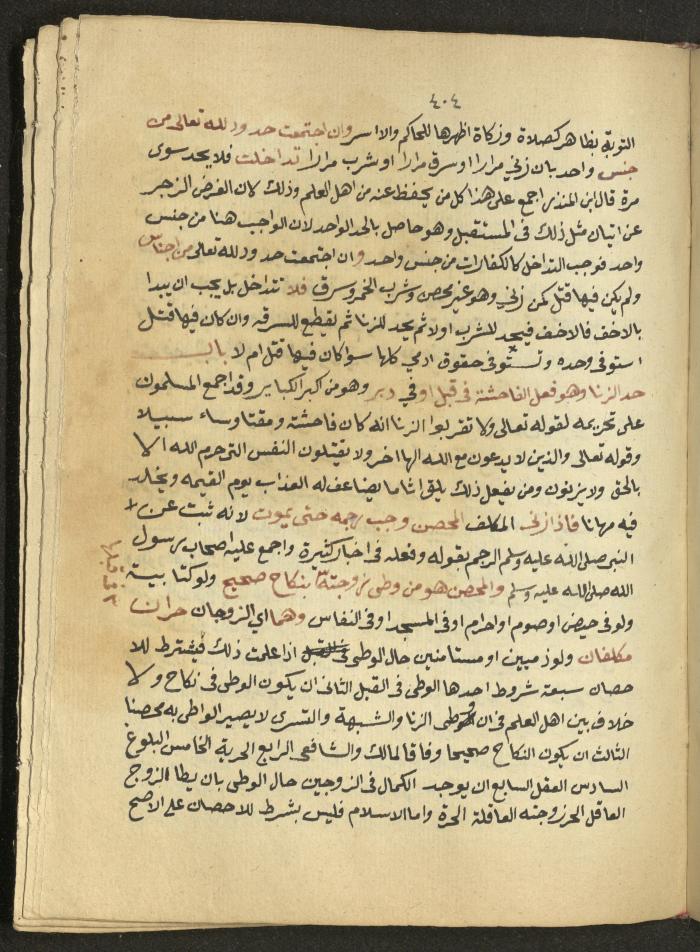 ٤٠٤
التوبة بظاهر كصلاة وزكاة اظهرها للحاكم والا اسر وان اجتمعت حدود لله تعالى من
جنس واحد بان زنى مرارا او سرق مرارا او شرب مرارا تداخلت فلا يحد سوى
مرة قال ابن المنذر اجمع على هذا كل من يحفظ عنه من اهل العلم وذلك كان الغرض الزجر
عن اتيان مثل ذلك في المستقبل وهو حاصل بالحد الواحد لان الواجب هنا من جنس
واحد فوجب التداخل كالكفارات من جنس واحد وان اجتمعت حدود لله تعالى من اجناس
ولم يكن فيها قتل كمن زنى وهو غير محصن وشرب الخمر وسرق فلا تتداخل بل يجب ان يبدا
بالاخف فالاخف فيحد للشرب اولا ثم يحد للزنا ثم يقطع للسرقه وان كان فيها قتل
استوفى وحده وتستوفى حقوق ادمي كلها سوا كان فيها قتل ام لا باب
حد الزنا وهو فعل الفاحشة في قبل او في دبر وهو من اكبر الكباير وقد اجمع المسلمون
على تحريمه لقوله تعالى ولا تقربوا الزنا انه كان فاحشة ومقتا وساء سبيلا
وقوله تعالى والذين لا يدعون مع الله الها اخر ولا يقتلون النفس التي حرم الله الا
بالحق ولا يزنون ومن يفعل ذلك يلق اثاما يضاعف له العذاب يوم القيمه ويخلد
فيه مهانا فاذا زنى المكلف المحصن وجب رجمه حتى يموت لانه ثبت عن
النبي صلى الله عليه وسلم الرجم بقوله وفعله في اخبار كثيرة واجمع عليه اصحاب رسول
الله صلى الله عليه وسلم والمحصن هو من وطى زوجته بنكاح صحيح ولو كتابية
في قبلها
ولو في حيض او صوم او احرام او في المسجد او في النفاس وهما اي الزوجان حران
مكلفان ولو ذميين او مستامنين حال الوطى في القبل اذا علمت ذلك فيشترط للا
حصان سبعة شروط احدها الوطى في القبل الثاني ان يكون الوطى في نكاح ولا
خلاف بين اهل العلم في ان وطى الزنا والشبهة والتسرى لا يصير الواطى به محصنا
الثالث ان يكون النكاح صحيحا وفاقا لمالك والشافعى الرابع الحرية الخامس البلوغ
السادس العقل السابع ان يوجد الكمال في الزوجين حال الوطى بان يطا الزوج
العاقل الحر زوجته العاقلة الحرة واما الاسلام فليس بشرط للاحصان على الاصح